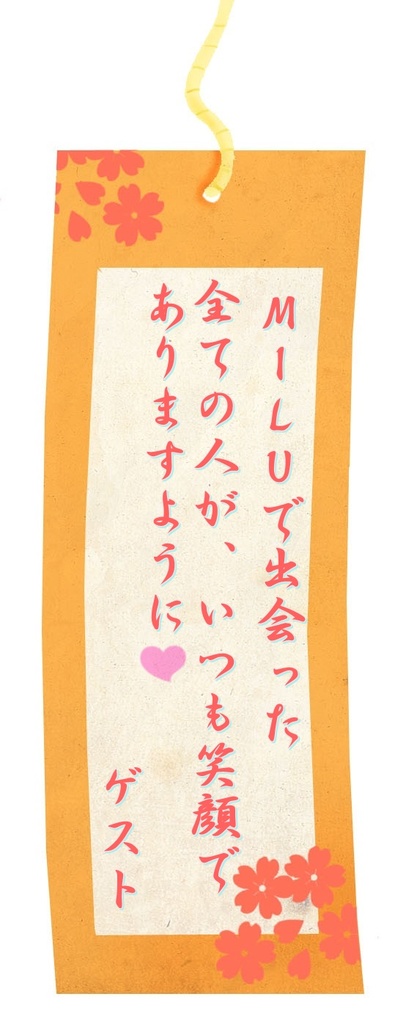 MILUで出会った
全ての人が、いつも笑顔で
ありますように
ゲスト